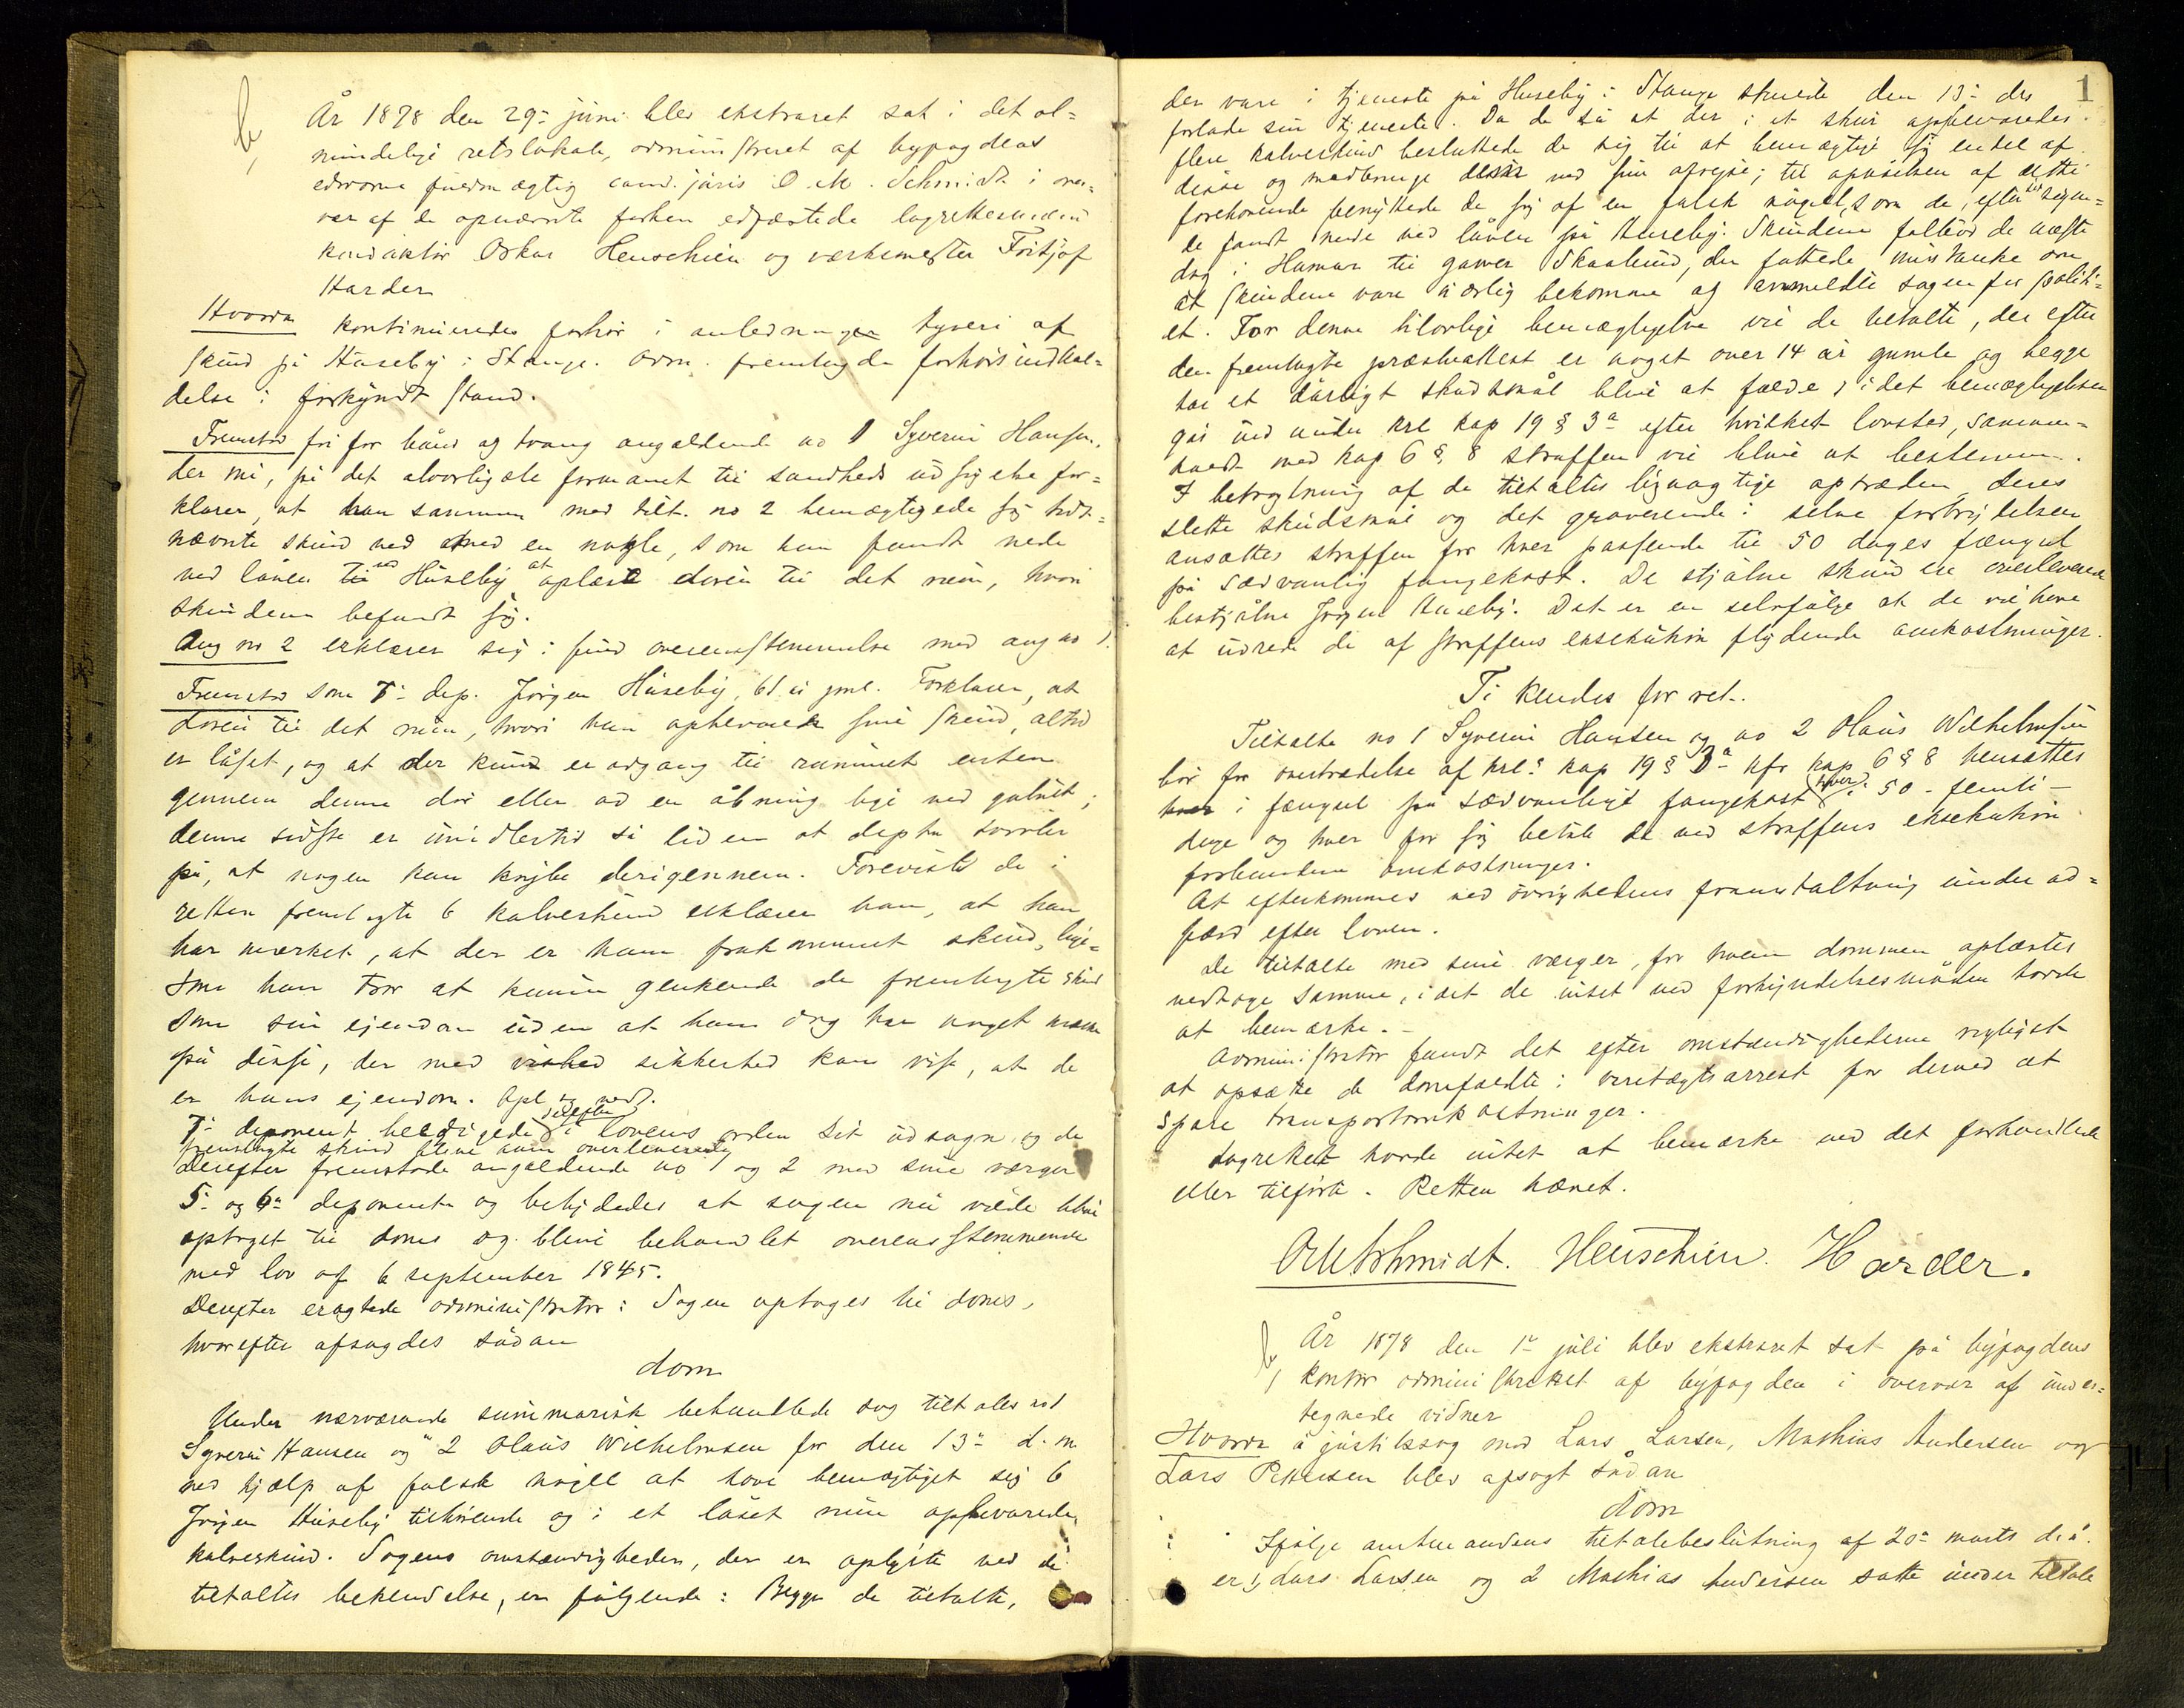 År 1878 den 29- juni blev ekstraret sat i det al=
mindelige retslokale, administreret af byfogdens
edsvorne fuldmægtig cand. juris O. M. Schmidt i over=
vær af de opnævnte forhen edfæstede lagrettesmænd
konduktør Oskar Henschien og værkmester Fritjof
Harder
Hvorda kontinueredes forhør i anledningen tyveri af
skind på Huseby i Stange. Adm. fremlagde forhørsindkal=
delse i forkyndt stand.
Fremstod fri for bånd og tvang angældende no 1 Syverin Hansen.
der nu, på det alvorligste formanet til sandheds udsigelse for=
klarer, at han sammen med tilt. no 2 bemægtigede sig hidt=
nævnte skind ved med en nøgle, som han fandt nede
ved låven til Huseby at oplåse døren til det rum, hvori
skindene befandt sig.
Ang no 2 erklærer sig i fuld overensstemmelse med ang no 1.
Fremstod som 7- dep. Jørgen Huseby, 61 år gml. Forklarer, at
døren til det rum, hvori han opbevarede sine skind, altid
er låset, og at der kun er adgang til rummet enten
gennem denne dør eller ad en åbning lige ved gulvet;
denne sidste er imidlertid så liden at depten tvivler
på, at nogen kan krybe derigennem. Foreviste de i
retten fremlagte 6 kalveskind erklærer han, at han
har mærket, at der er ham frakommet skind, lige=
som han tror at kunne genkende de fremlagte skind
som sin ejendom uden at han dog har noget mærke
på disse, der med vished sikkerhed kan vise, at de
er hans ejendom. Opl og vedt.
7- deponent beedigede derefter i lovens orden sit udsagn og de
fremlagte skind bleve ham overleverede
Derefter fremstode angældende no 1 og 2 med sine værger
5- og 6- deponenter og betydedes at sagen nu vilde blive
optaget til doms og blive behandlet overensstemmende
med lov af 6 september 1845.
Derefter eragtede administrator: Sagen optages til doms,
hvorefter afsagdes sådan
dom
Under nærværende summarisk behandlede sag tiltales no 1
Syverin Hansen og " 2 Olaus Wilhelmsen for den 13- d. m.
ved hjælp af falsk nøgel at have bemægtiget sig 6
Jørgen Huseby tilhørende og i et låset rum opbevarede
kalveskind. Sagens omstændigheder, der er oplyste ved de
tiltaltes bekendelse, er følgende: Begge de tiltalte,
1
der vare i tjeneste på Huseby i Stange skulde den 13- ds
forlade sin tjeneste. Da de så at der i et skur opbevaredes
flere kalveskind besluttede de sig til at bemægtige sig endel af
disse og medbringe disse ved sin afrejse; til opnåelsen af dette
forehavende benyttede de sig af en falsk nøgel, som de, efter sigen=
de fandt nede ved låven på Huseby. Skindene falbød de næste
dag i Hamar til garver Skaalund, der fattede mistanke om
at skindene vare uærlig bekomne og anmeldte sagen for politi=
et. For denne ulovlige bemægtigelse vil de tiltalte, der efter
den fremlagte præsteattest er noget over 14 år gamle og begge
har et dårligt skudsmål blive at fælde, idet bemægtigelsen
går ind under krl kap 19 § 3a efter hvilket lovsted, sammen=
holdt med kap 6 § 8 straffen vil blive at bestemme.
I betragtning af de tiltaltes ligeartige optræden deres
slette skudsmål og det graverende i selve forbrydelsen
ansættes straffen for hver passende til 50 dages fængsel
på sædvanlig fangekost. De stjålne skind ere overleverede
bestjålne Jørgen Huseby. Det er en selvfølge at de vil have
at udrede de af straffens eksekution flydende omkostninger.
Ti kendes for ret.
Tiltalte no 1 Syverin Hansen og no 2 Olaus Wilhelmsen
bør for overtrædelse af krl: kap 19 § 3a kfr kap 6 § 8 hensættes
hver i fængsel på sædvanlige fangekost (hver) i 50 - femti -
dage og hver for sig betale de ved straffens eksekution
forbundne omkostninger.
At efterkommes ved øvrighedens foranstaltning under ad=
færd efter loven.
De tiltalte med sine værger, for hvem dommen oplæstes
vedtoge samme, idet de intet ved forkyndelsesmåden havde
at bemærke.-
Administrator fandt det efter omstændighederne rigtigst
at opsætte de domfældte i varetægtsarrest for derved at
spare transportomkostninger.
Lagrettet havde intet at bemærke ved det forhandlede
eller tilførte. Retten hævet.
OMSchmidt. Henschien. Harder.
År 1878 den 1- juli blev ekstraret sat på byfogdens
kontor administreret af byfogden i overvær af under=
tegnede vidner
Hvorda i justitssag mod Lars Larsen, Mathias Andersen og
Lars Pettersen blev afsagt sådan
dom
Ifølge amtmandens tiltalebeslutning af 20- marts d. å.
er 1, Lars Larsen og 2 Mathias Andersen satte under tiltale